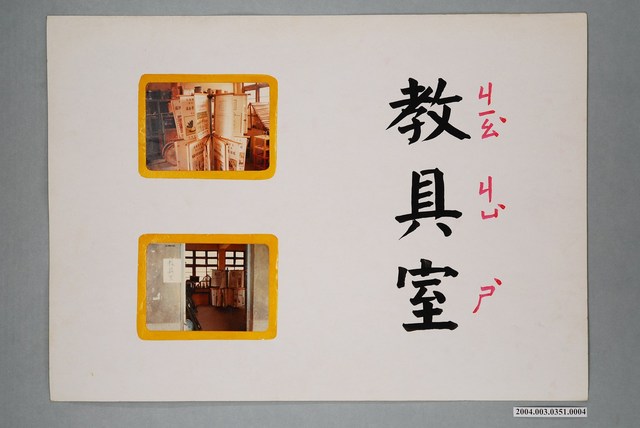 教具室
ㄐㄧㄠˋ
ㄐㄩˋ
ㄕˋ
2004.003.0351.0004